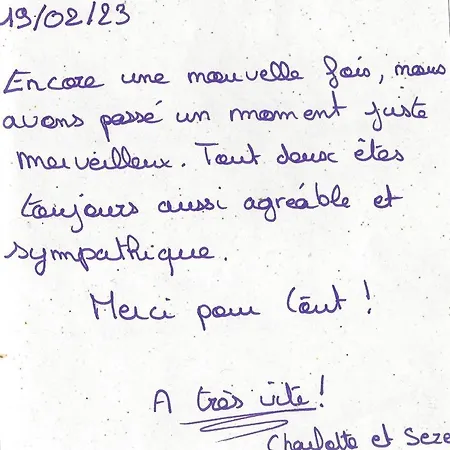 19/02/23
Encore une nouvelle fois, nous
avons passé un moment juste
merveilleux. Tout deux êtes
toujours aussi agréable et
sympathique.
Merci pour tout !
A très vite !
Charlotte et